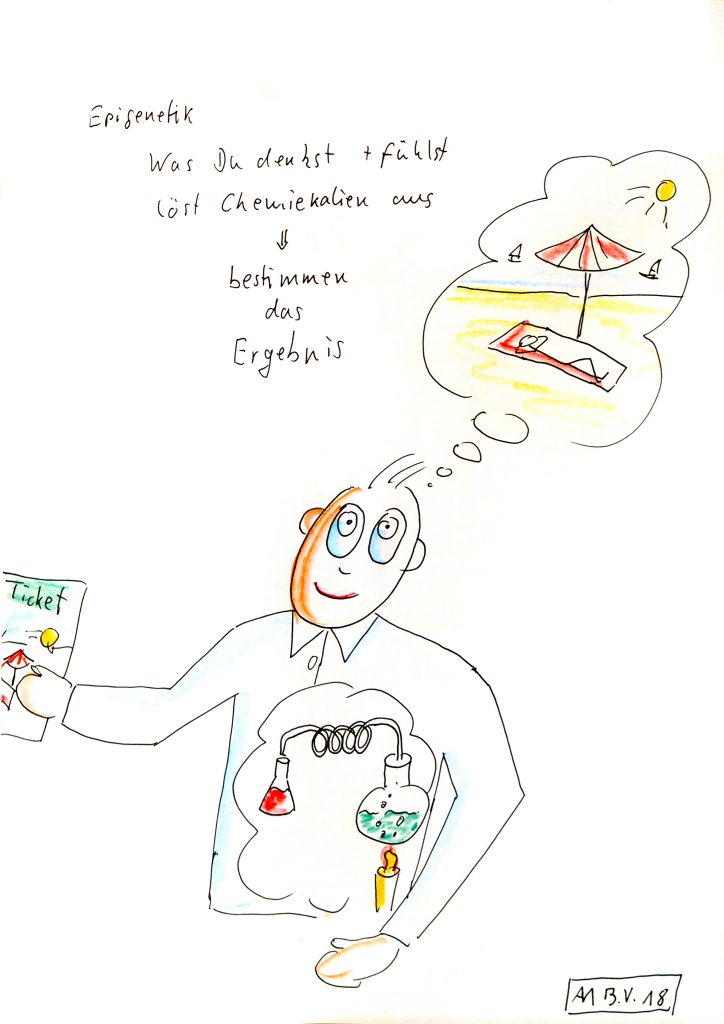 Epigenetik
Was Du denkst + fühlst
löst Chemiekalien aus
⇓
bestimmen
das
Ergebnis
Ticket
B.V. 18